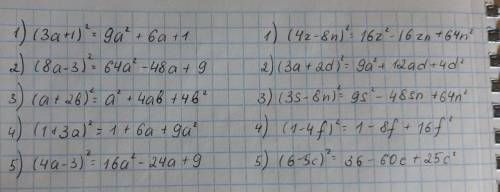 1) (3a+1)² = 9a² + 6a + 1
2) (8a-3)² = 64a² - 48a + 9
3) (a+2b)² = a² + 4ab + 4b²
4) (1+3a)² = 1 + 6a + 9a²
5) (4a-3)² = 16a² - 24a + 9
1) (4z-8n)² = 16z² - 16zn + 64n²
2) (3a+2d)² = 9a² + 12ad + 4d²
3) (3s-8n)² = 9s² - 48sn + 64n²
4) (1-4f)² = 1 - 8f + 16f²
5) (6-5c)² = 36 - 60c + 25c²